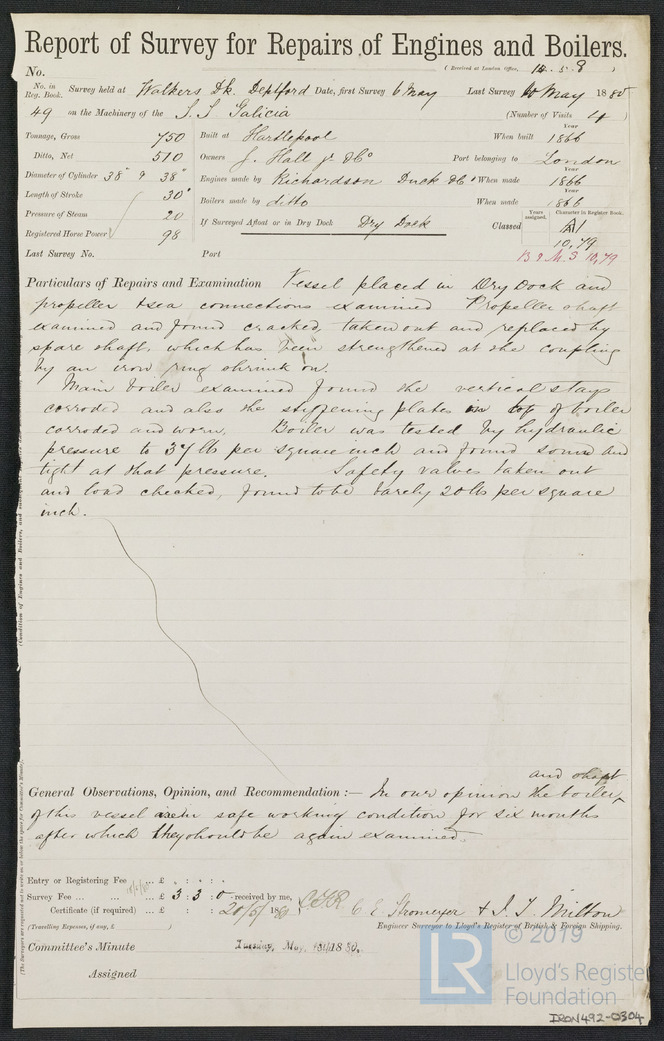 Report of Survey for Repairs of Engines and Boilers.
No. (Received at London Office, 14. 5. 8 )
No. in Reg. Book. Survey held at Walkers Dk. Deptford Date, first Survey 6 May Last Survey 10 May 1880
49 on the Machinery of the S.S Galicia (Number of Visits 4 )
Tonnage, Gross 750 Built at Hartlepool When built Year 1866
Ditto, Net 510 Owners J. Hall jr & Co Port belonging to London
Diameter of Cylinder 38" & 38" Engines made by Richardson Duck & Co When made Year 1866
Length of Stroke 30" Boilers made by ditto When made Year 1866
Pressure of Steam 20 If Surveyed Afloat or in Dry Dock Dry Dock Classed Years assigned. Character in Register Book. A1
Registered Horse Power 98 10,79
Last Survey No. Port B & M S 10,79
Particulars of Repairs and Examination Vessel placed in Dry Dock and
propeller & sea connections examined Propeller shaft
examined and found cracked, taken out and replaced by
spare shaft, which has been strengthened at the coupling
by an iron ring shrunk on.
Main boiler examined found the vertical stays
corroded and also the stiffening plates in top of boiler
corroded and worn, Boiler was tested by hydraulic
pressure to 37 lbs per square inch and found sound and
tight at that pressure. Safety valves taken out
and load checked, found to be barely 20 lbs per square
inch.
and shaft
General Observations, Opinion, and Recommendation :— In our opinion the boiler
of this vessel are in safe working condition for six months
after which they should be again examined.
Entry or Registering Fee ... £ : :
Survey Fee ... ... ... £ 3 : 3 : 0 received by me,
Certificate (if required) ... £ : : 20/5/1880
(Travelling Expenses, if any, £ )
C. E. Stromeyer & J. T. Milton
Engineer Surveyor to Lloyd's Register of British & Foreign Shipping.
Committee's Minute Tuesday, May, 1880.
Assigned
© 2019
LR Lloyd's Register
Foundation
IRON492-0304